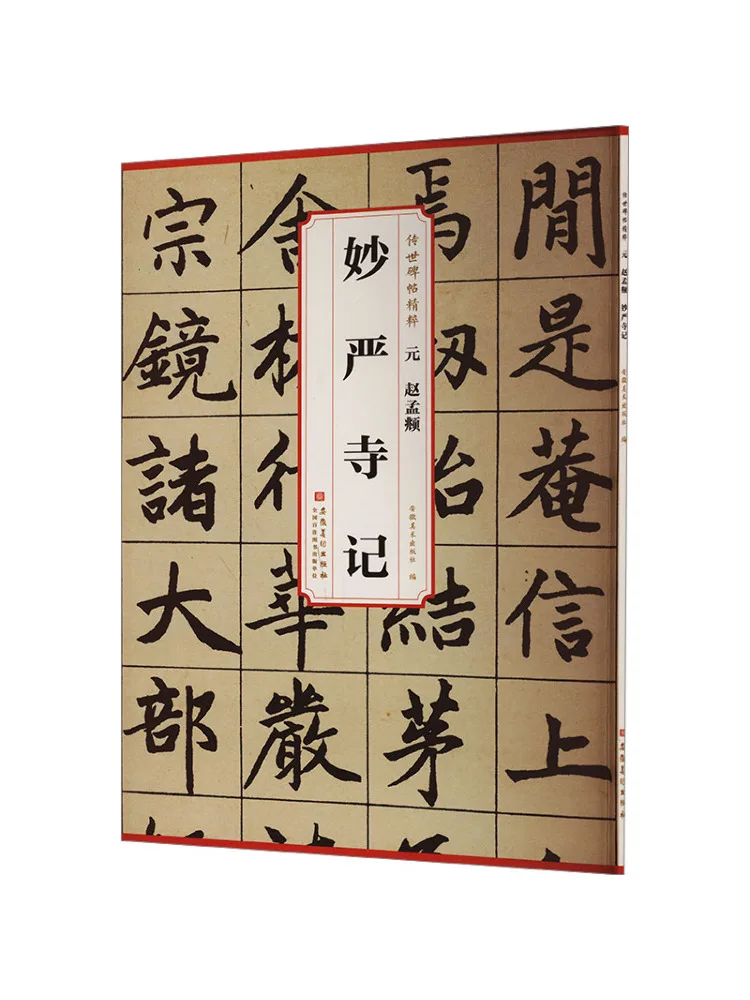 传世碑帖精粹 元 赵孟頫
安徽美术出版社 编
妙严寺记
安徽美术出版社
全国百佳图书出版单位
閒是菴信上
焉始結茅
舍行華嚴
宗鏡諸大部
传世碑帖精粹 元 赵孟頫 妙严寺记 安徽美术出版社 编
安徽美术出版社